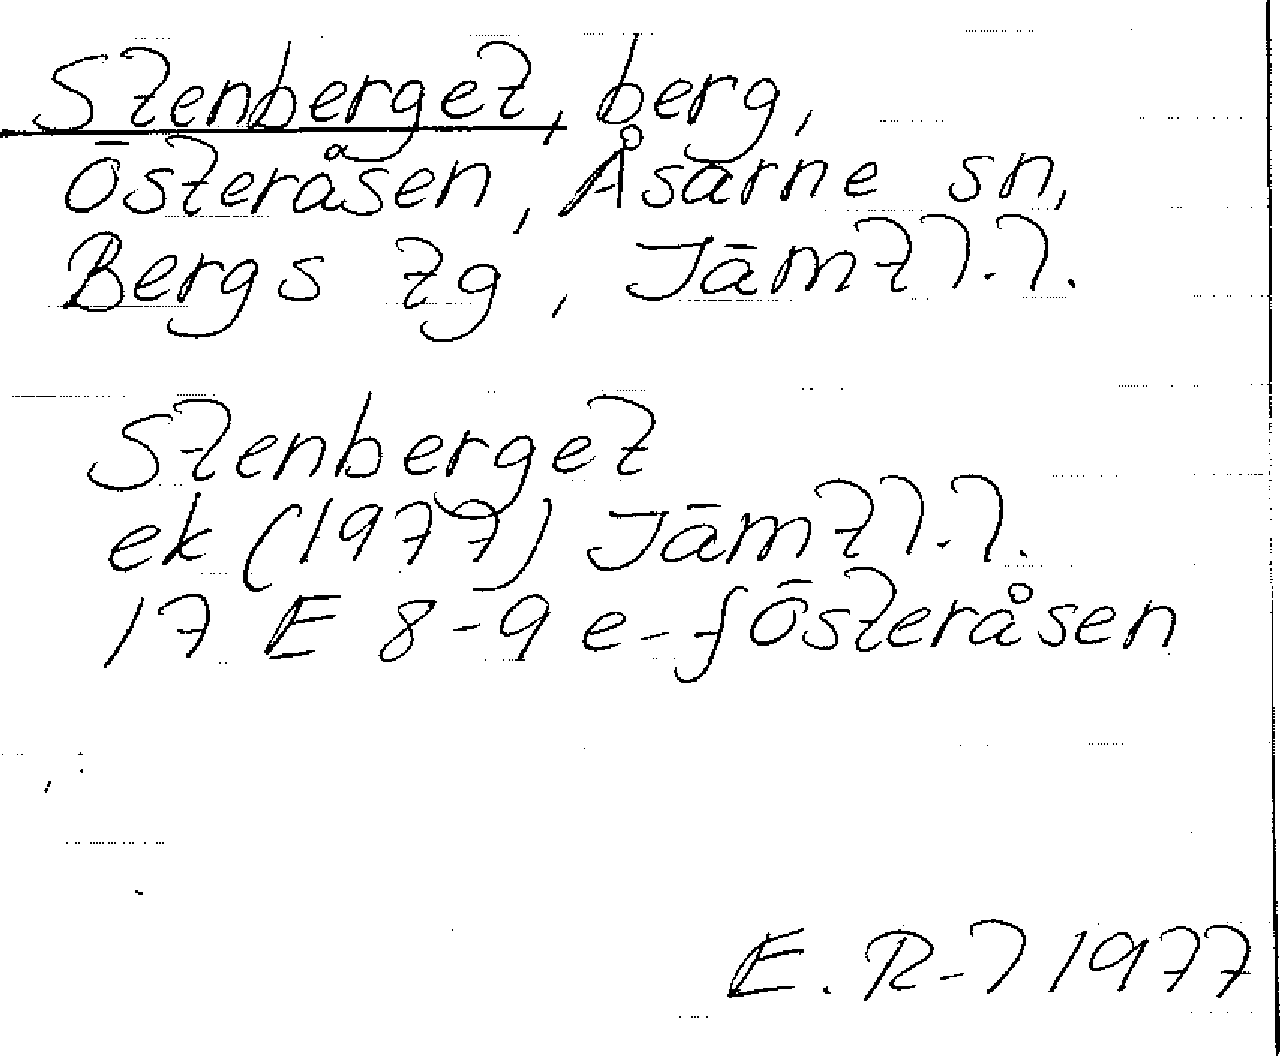 Stenberget, berg,
Österåsen, Åsarne sn,
Bergs tg, Jämtl.l.
Stenberget
ek (1977) Jämtl.l.
17 E 8-9 e-f Österåsen
E. R-l 1977